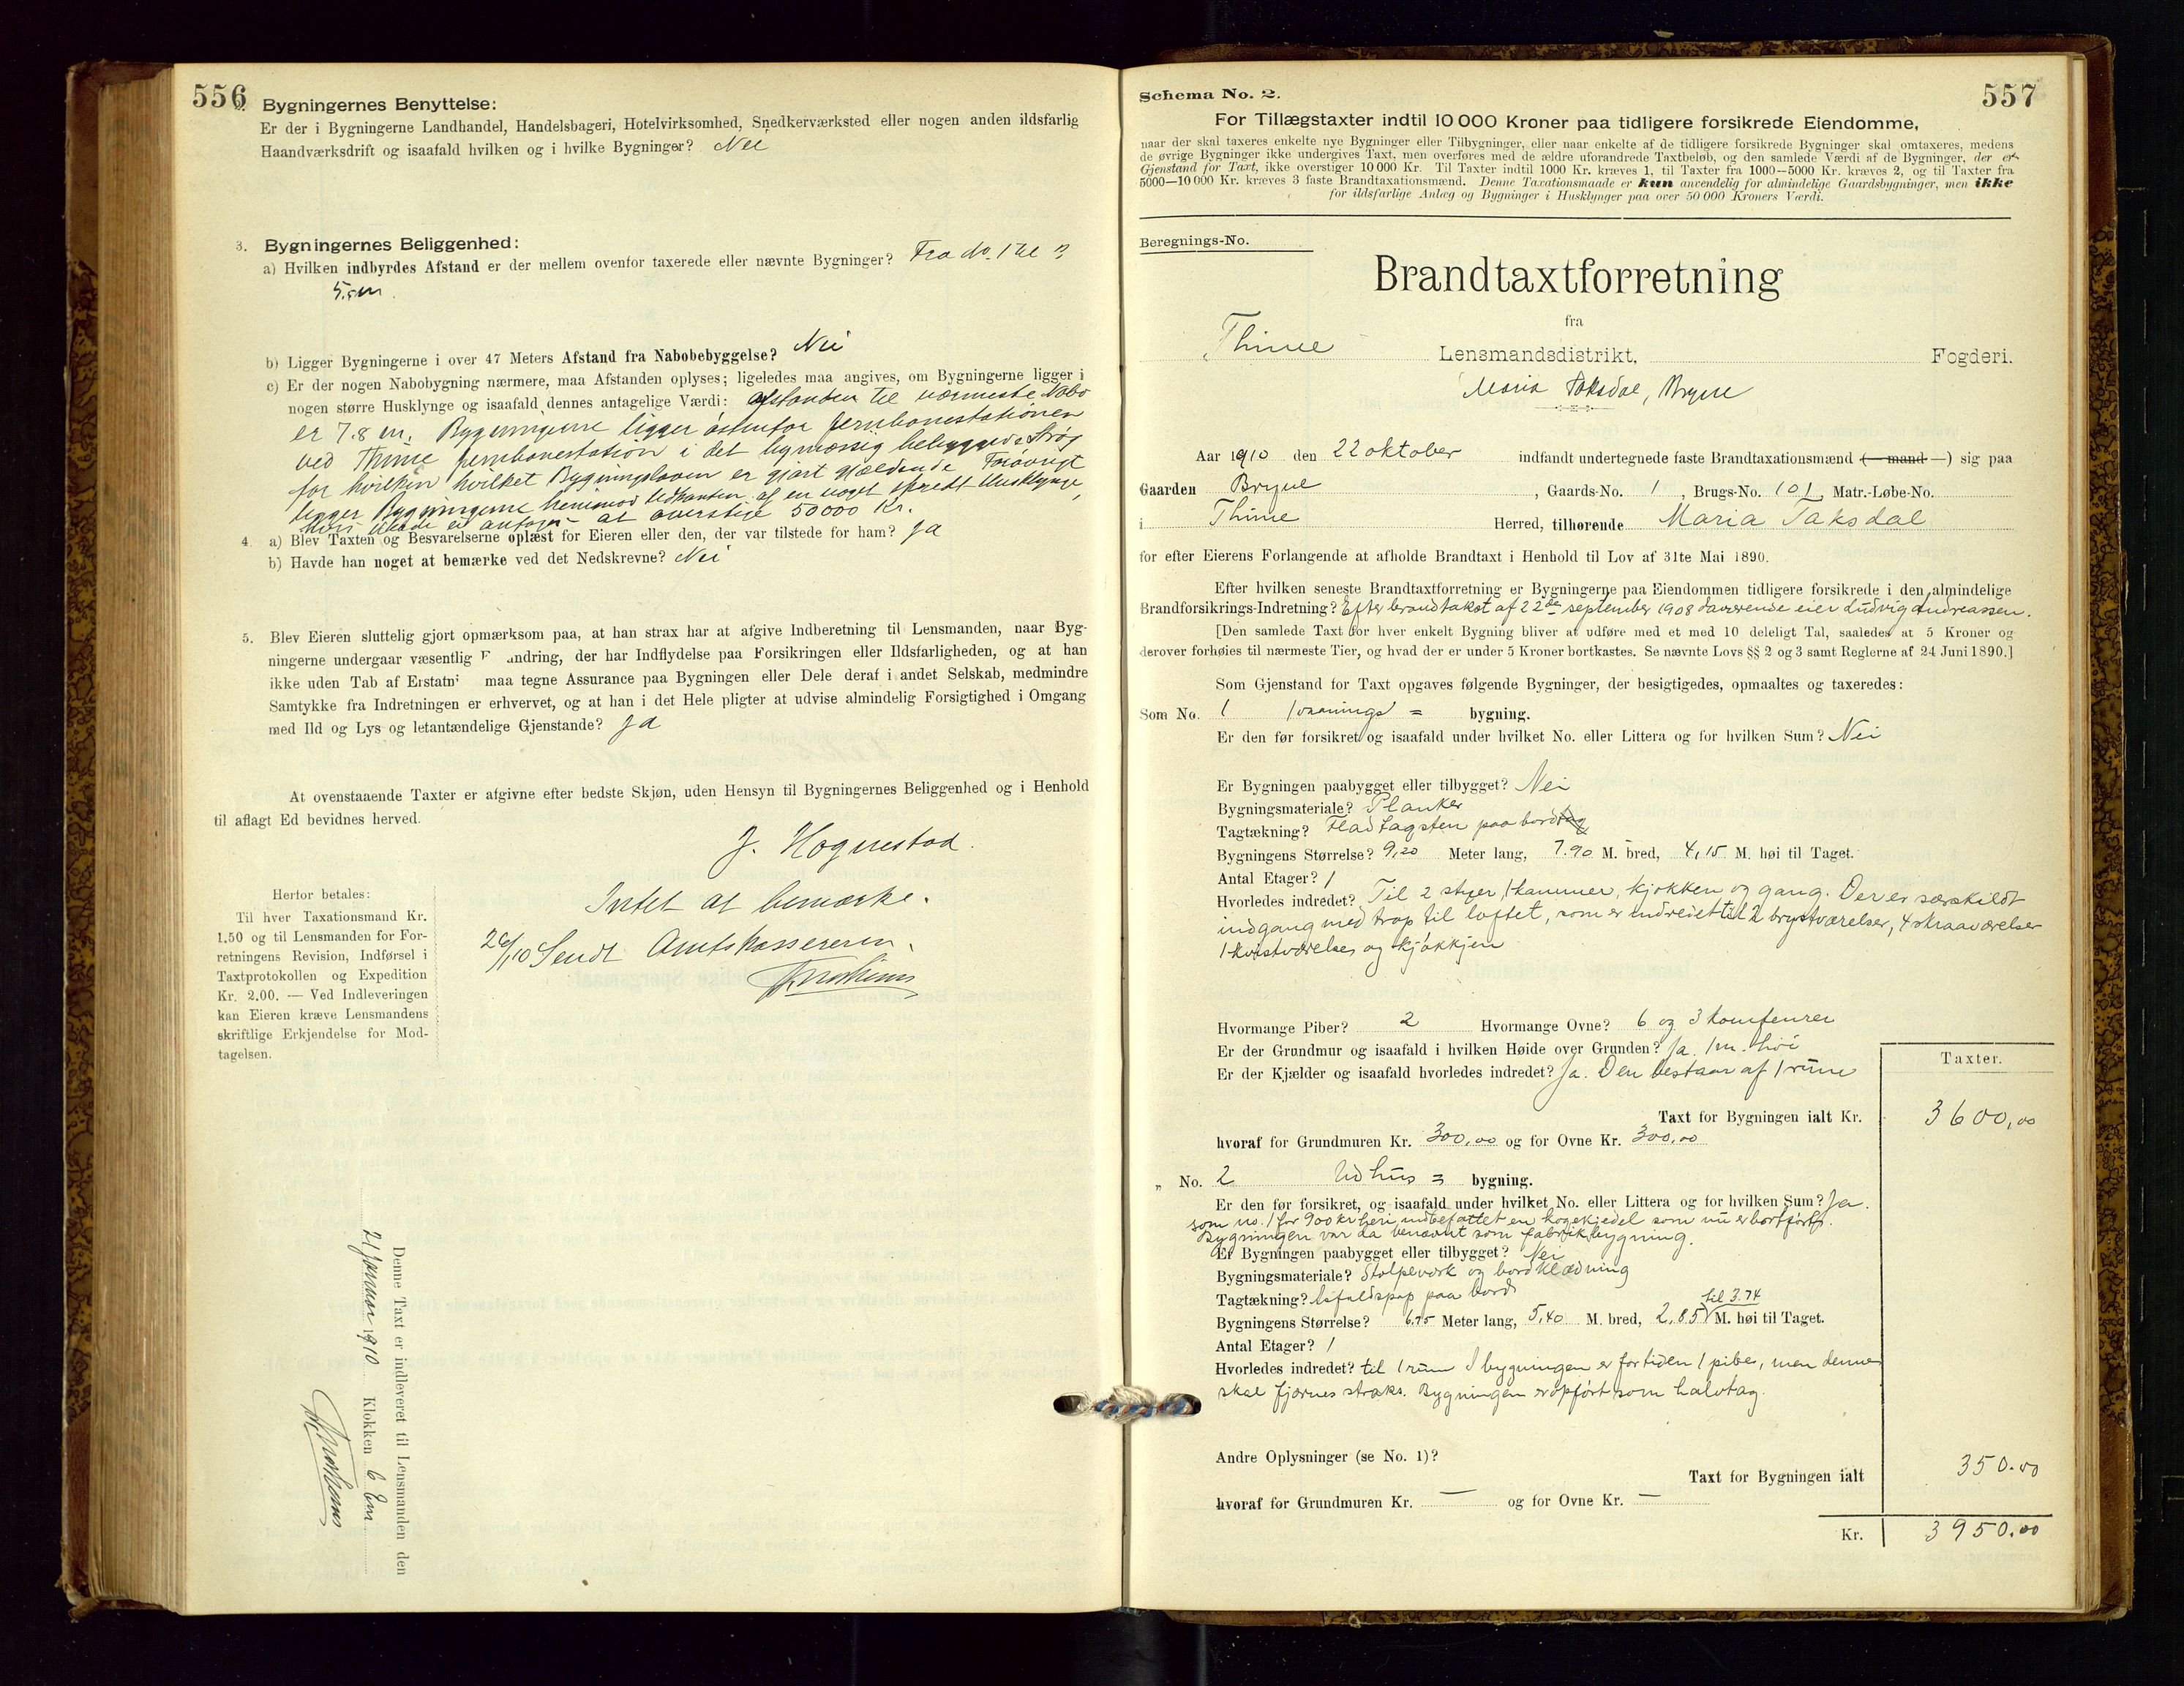 556
2. Bygningernes Benyttelse:
Er der i Bygningerne Landhandel, Handelsbageri, Hotelvirksomhed, Snedkerværksted eller nogen anden ildsfarlig
Haandværksdrift og isaafald hvilken og i hvilke Bygninger? Nei
3. Bygningernes Beliggenhed:
a) Hvilken indbyrdes Afstand er der mellem ovenfor taxerede eller nævnte Bygninger? Fra No. 1 til 2
5 m.
b) Ligger Bygningerne i over 47 Meters Afstand fra Nabobebyggelse? Nei
c) Er der nogen Nabobygning nærmere, maa Afstanden oplyses; ligeledes maa angives, om Bygningerne ligger i
nogen større Husklynge og isaafald dennes antagelige Værdi: afstanden til nærmeste Nabo
er 7.8 m. Bygningerne ligger østenfor jernbanestationen
ved Thime jernbanestation i det bymæssig bebyggede Strøg
for hvilken hvilket Bygningsloven er gjort gjældende Forøvrigt
ligger Bygningerne henimod Udkanten af en noget spredt Husklynge,
hvis antages at overstige 50000 Kr.
4. a) Blev Taxten og Besvarelserne oplæst for Eieren eller den, der var tilstede for ham? ja
b) Havde han noget at bemærke ved det Nedskrevne? Nei
5. Blev Eieren sluttelig gjort opmærksom paa, at han strax har at afgive Indberetning til Lensmanden, naar Byg-
ningerne undergaar væsentlig F andring, der har Indflydelse paa Forsikringen eller Ildsfarligheden, og at han
ikke uden Tab af Erstatn maa tegne Assurance paa Bygningen eller Dele deraf i andet Selskab, medmindre
Samtykke fra Indretningen er erhvervet, og at han i det Hele pligter at udvise almindelig Forsigtighed i Omgang
med Ild og Lys og letantændelige Gjenstande? ja
At ovenstaaende Taxter er afgivne efter bedste Skjøn, uden Hensyn til Bygningernes Beliggenhed og i Henhold
til aflagt Ed bevidnes herved.
J. Hognestad.
Intet at bemærke.
26/10 Sendt Amtskassereren.
Herfor betales:
Til hver Taxationsmand Kr.
1.50 og til Lensmanden for For-
retningens Revision, Indførsel i
Taxtprotokollen og Expedition
Kr. 2.00. — Ved Indleveringen
kan Eieren kræve Lensmandens
skriftlige Erkjendelse for Mod-
tagelsen.
Denne Taxt er indleveret til Lensmanden den
21 januar 1910 Klokken 6 Em
557
Schema No. 2.
For Tillægstaxter indtil 10 000 Kroner paa tidligere forsikrede Eiendomme,
naar der skal taxeres enkelte nye Bygninger eller Tilbygninger, eller naar enkelte af de tidligere forsikrede Bygninger skal omtaxeres, medens
de øvrige Bygninger ikke undergives Taxt, men overføres med de ældre uforandrede Taxtbeløb, og den samlede Værdi af de Bygninger, der er
Gjenstand for Taxt, ikke overstiger 10 000 Kr. Til Taxter indtil 1000 Kr. kræves 1, til Taxter fra 1000—5000 Kr. kræves 2, og til Taxter fra
5000—10 000 Kr. kræves 3 faste Brandtaxationsmænd. Denne Taxationsmaade er kun anvendelig for almindelige Gaardsbygninger, men ikke
for ildsfarlige Anlæg og Bygninger i Husklynger paa over 50 000 Kroners Værdi.
Beregnings-No.
Brandtaxtforretning
fra
Thime Lensmandsdistrikt, Fogderi.
Maria Taksdal, Bryne
Aar 1910 den 22 oktober indfandt undertegnede faste Brandtaxationsmænd (— mand —) sig paa
Gaarden Bryne, Gaards-No. 1, Brugs-No. 101, Matr.-Løbe-No.
i Thime Herred, tilhørende Maria Taksdal
for efter Eierens Forlangende at afholde Brandtaxt i Henhold til Lov af 31te Mai 1890.
Efter hvilken seneste Brandtaxtforretning er Bygningerne paa Eiendommen tidligere forsikrede i den almindelige
Brandforsikrings-Indretning? Efter brandtakst af 22de september 1908 daværende eier Ludvig Andreassen.
[Den samlede Taxt for hver enkelt Bygning bliver at udføre med et med 10 deleligt Tal, saaledes at 5 Kroner og
derover forhøies til nærmeste Tier, og hvad der er under 5 Kroner bortkastes. Se nævnte Lovs §§ 2 og 3 samt Reglerne af 24 Juni 1890.]
Som Gjenstand for Taxt opgaves følgende Bygninger, der besigtigedes, opmaaltes og taxeredes:
Som No. 1 Vaanings = bygning.
Er den før forsikret og isaafald under hvilket No. eller Littera og for hvilken Sum? Nei
Er Bygningen paabygget eller tilbygget? Nei
Bygningsmateriale? Planker
Tagtækning? Flad tagsten paa bordtag
Bygningens Størrelse? 9,20 Meter lang, 7.90 M. bred, 4,15 M. høi til Taget.
Antal Etager? 1
Hvorledes indredet? Til 2 stuer, 1 kammer, kjøkken og gang. Der er særskildt
indgang med trap til loftet, som er indredet til 2 brystværelser, 4 skraaværelser
1 kvistværelse og kjøkkjen
Hvormange Piber? 2 Hvormange Ovne? 6 og 3 komfurer
Er der Grundmur og isaafald i hvilken Høide over Grunden? Ja. 1 m. høi
Er der Kjælder og isaafald hvorledes indredet? Ja. Den bestaar af 1 rum
Taxter.
Taxt for Bygningen ialt Kr. 3600,00
hvoraf for Grundmuren Kr. 300,00 og for Ovne Kr. 300,00
„ No. 2 Udhus = bygning.
Er den før forsikret, og isaafald under hvilket No. eller Littera og for hvilken Sum? Ja.
som no. 1 for 900 kr heri indbefattet en kogekjedel som nu er bortført.
Bygningen var da benævnt som fabrikbygning.
Er Bygningen paabygget eller tilbygget? Nei
Bygningsmateriale? Stolpeværk og bordklædning
Tagtækning? Asfaldspap paa bord
til 3.74
Bygningens Størrelse? 6.75 Meter lang, 5,40 M. bred, 2,85 M. høi til Taget.
Antal Etager? 1
Hvorledes indredet? til 1 rum I bygningen er for tiden 1 pibe, men denne
skal fjernes straks. Bygningen er opført som halvtag.
Andre Oplysninger (se No. 1)?
Taxt for Bygningen ialt 350.00
hvoraf for Grundmuren Kr. — og for Ovne Kr. —
Kr. 3950.00